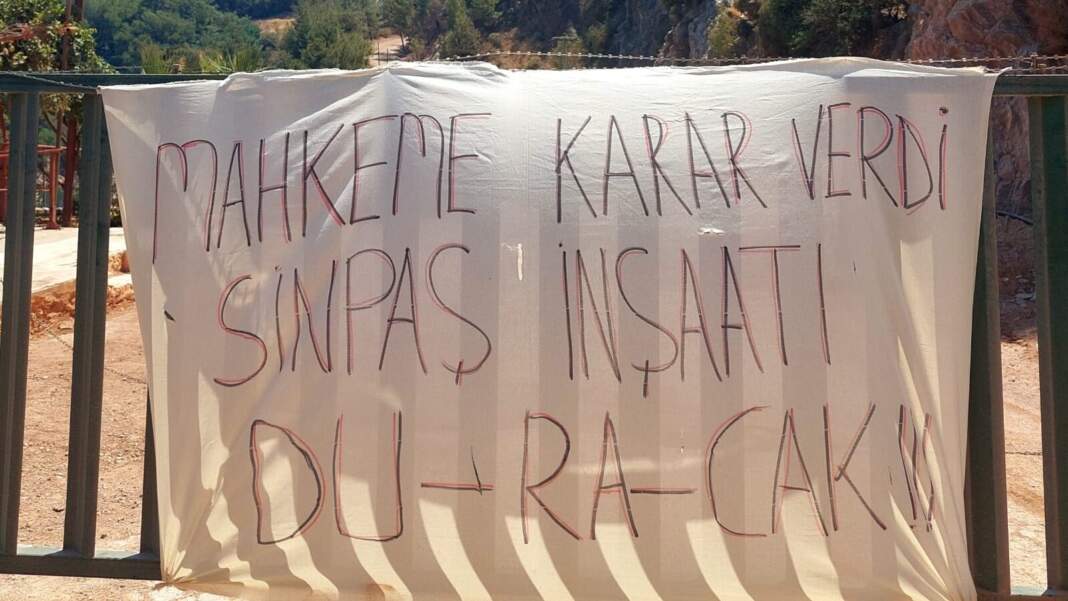 MAHKEME KARAR VERDİ
SİNPAŞ İNŞAATI
DU-RA-CAK!!